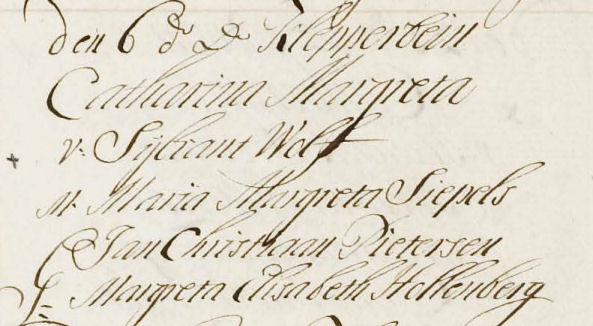 den 6 do Do Klepperbein
Catharina Margreta
v: Sijbrant Wolff
M: Maria Margreta Siepels
Jan Christiaan Pietersen
G: Margreta Elisabeth Hollenberg